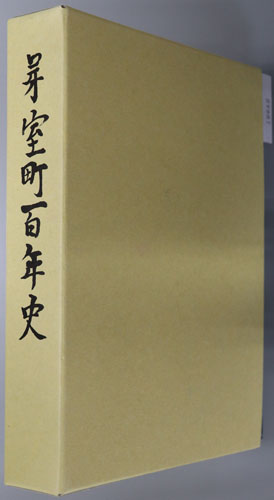 芽室町百年史